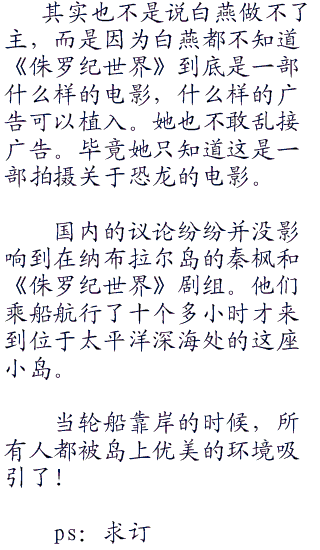 其实也不是说白燕做不了
主，而是因为白燕都不知道
《侏罗纪世界》到底是一部
什么样的电影，什么样的广
告可以植入。她也不敢乱接
广告。毕竟她只知道这是一
部拍摄关于恐龙的电影。
国内的议论纷纷并没影
响到在纳布拉尔岛的秦枫和
《侏罗纪世界》剧组。他们
乘船航行了十个多小时才来
到位于太平洋深海处的这座
小岛。
当轮船靠岸的时候，所
有人都被岛上优美的环境吸
引了！
ps：求订